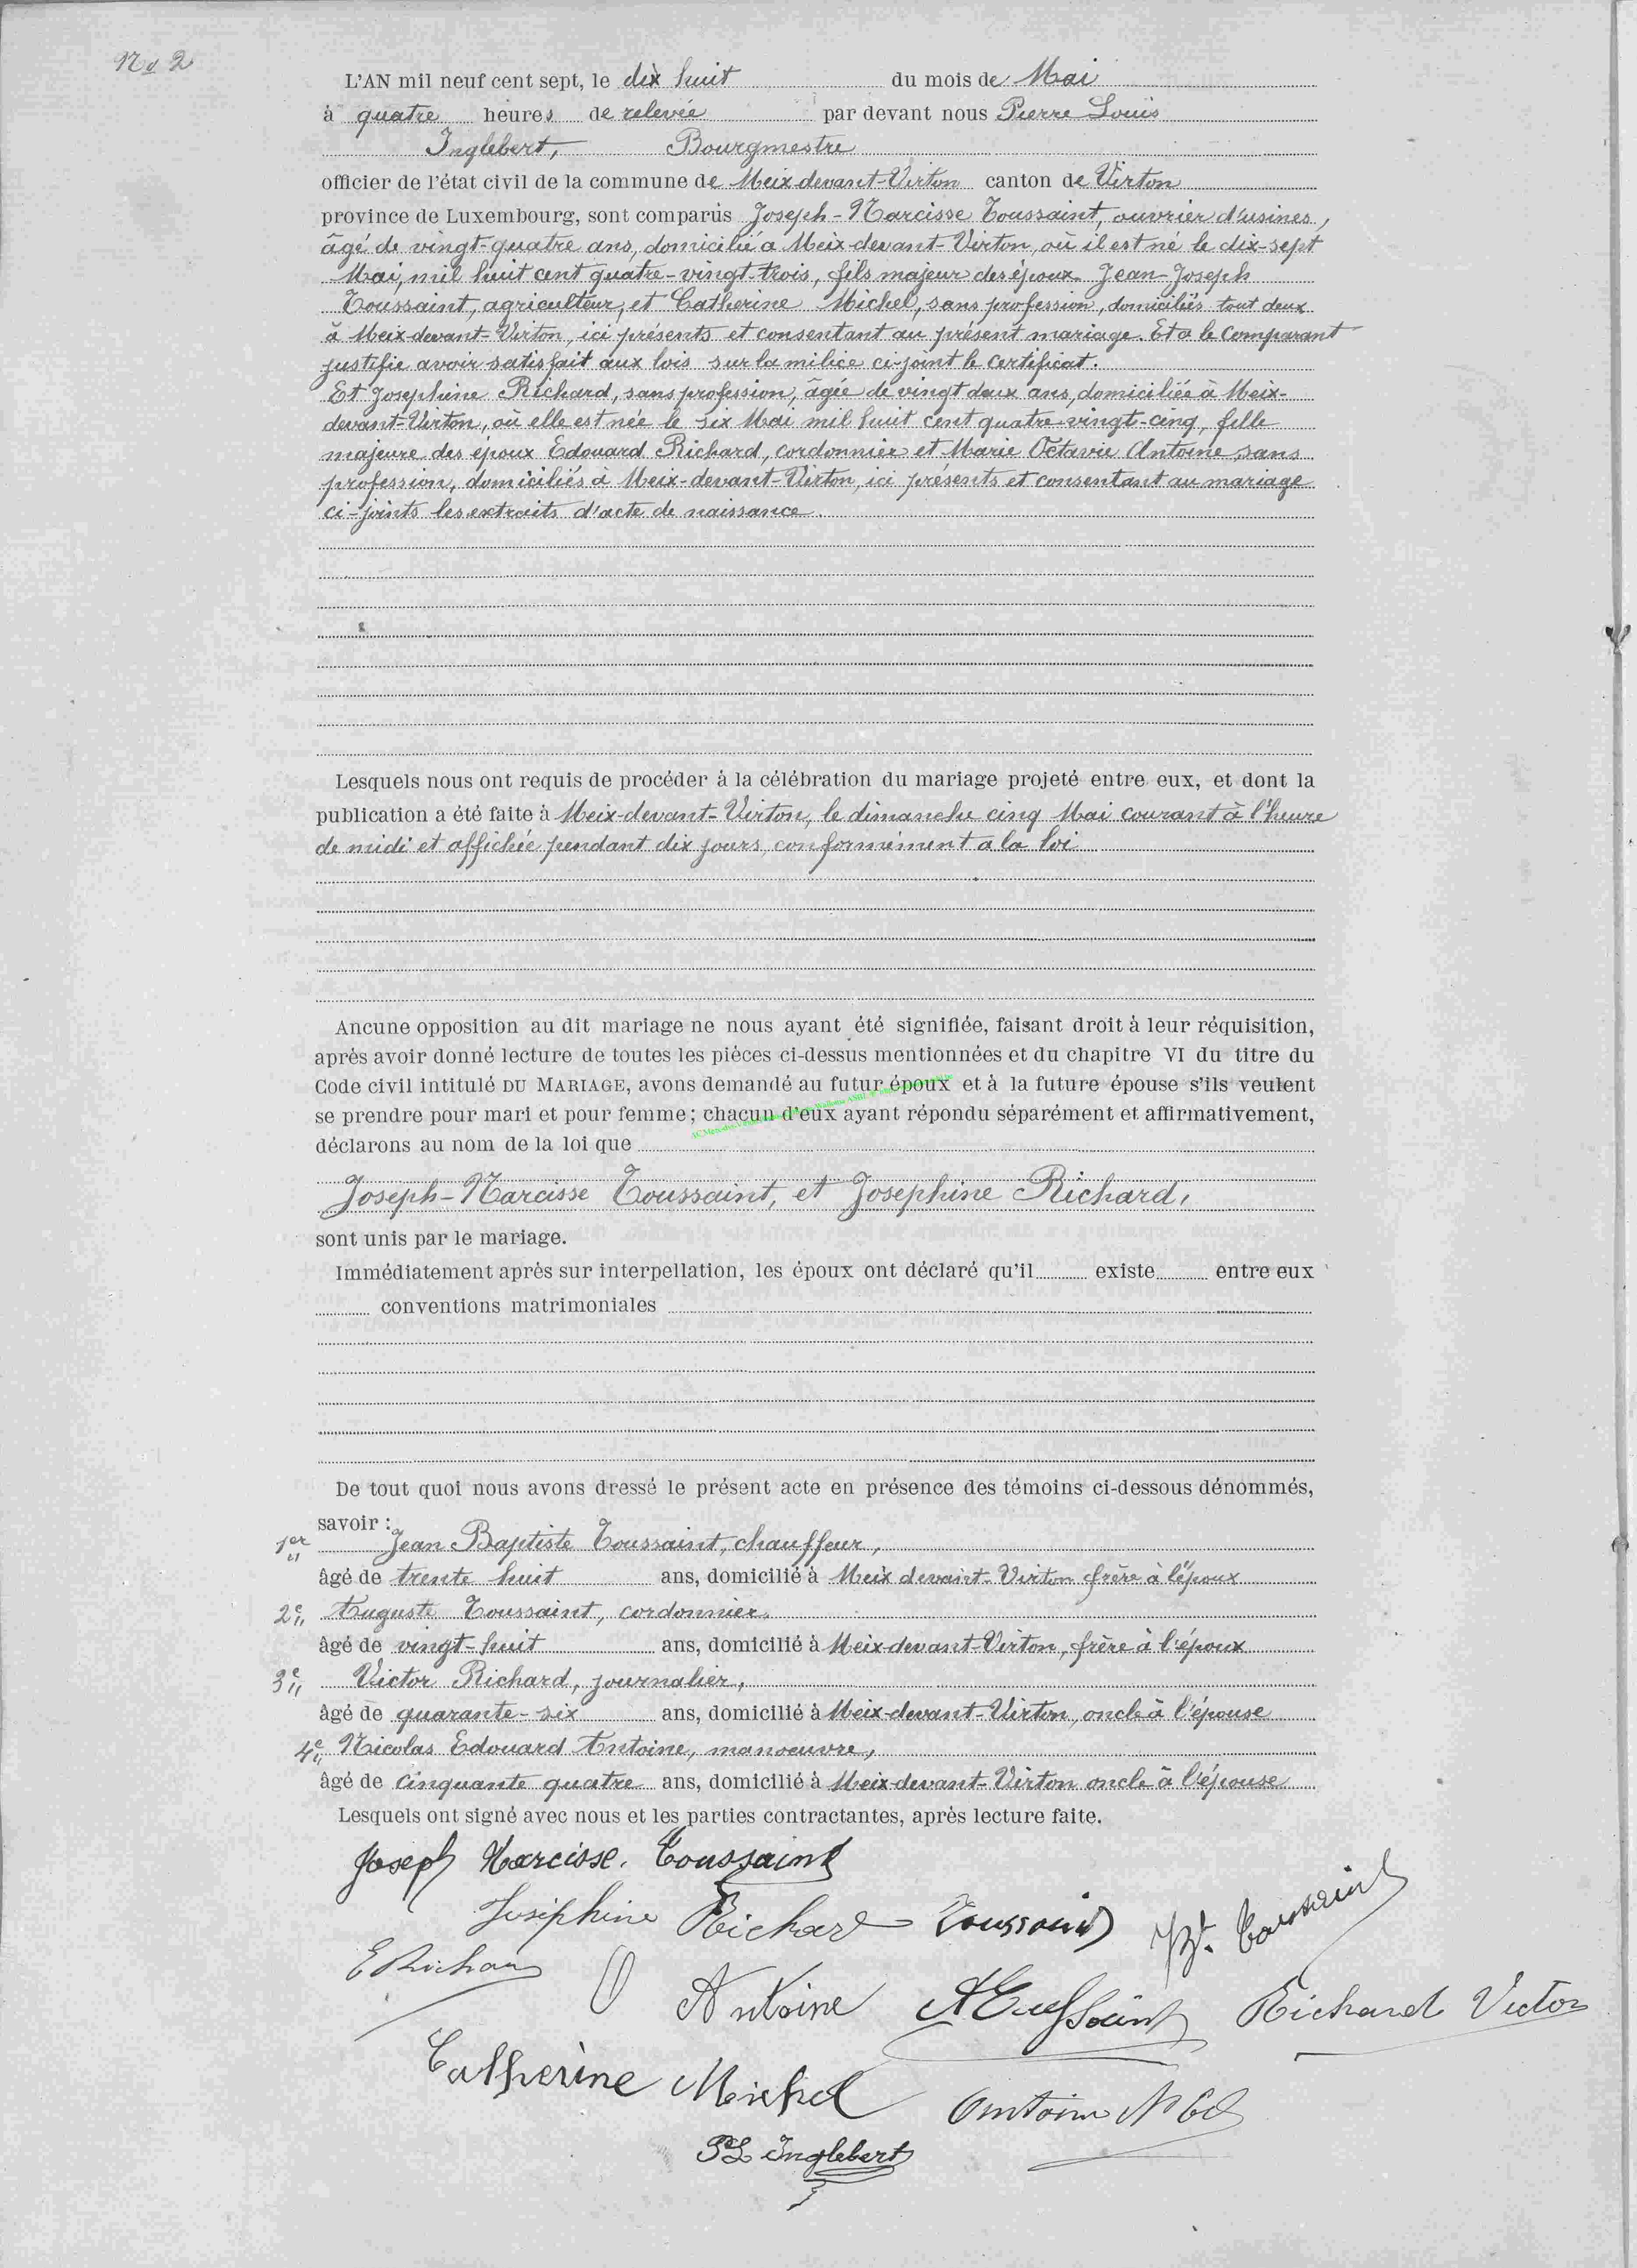 No 2
L'AN mil neuf cent sept, le dix huit du mois de Mai
à quatre heures de relevée par devant nous Pierre Louis
Inglebert, Bourgmestre
officier de l'état civil de la commune de Meix devant-Virton canton de Virton
province de Luxembourg, sont comparus Joseph-Narcisse Toussaint, ouvrier d'usines,
âgé de vingt-quatre ans, domicilié a Meix-devant-Virton, où il est né le dix-sept
Mai, mil huit cent quatre-vingt-trois, fils majeur des époux Jean-Joseph
Toussaint, agriculteur, et Catherine Michel, sans profession, domiciliés tout deux
à Meix-devant-Virton, ici présents et consentant au présent mariage. Et a le Comparant
justifie avoir satisfait aux lois sur la milice ci-joint le certificat.
Et Josephine Richard, sans profession, âgée de vingt deux ans, domiciliée à Meix-
devant-Virton, où elle est née le six Mai mil huit cent quatre-vingt-cinq, fille
majeure des époux Edouard Richard, cordonnier et Marie Octavie Antoine sans
profession, domiciliés à Meix-devant-Virton, ici présents et consentant au mariage
ci-joints les extraits d'acte de naissance.
Lesquels nous ont requis de procéder à la célébration du mariage projeté entre eux, et dont la
publication a été faite à Meix-devant-Virton, le dimanche cinq Mai courant à l'heure
de midi et affichée pendant dix jours, conformément a la loi
Aucune opposition au dit mariage ne nous ayant été signifiée, faisant droit à leur réquisition,
après avoir donné lecture de toutes les pièces ci-dessus mentionnées et du chapitre VI du titre du
Code civil intitulé DU MARIAGE, avons demandé au futur époux et à la future épouse s'ils veulent
se prendre pour mari et pour femme ; chacun d'eux ayant répondu séparément et affirmativement,
déclarons au nom de la loi que
Joseph-Narcisse Toussaint, et Josephine Richard,
sont unis par le mariage.
Immédiatement après sur interpellation, les époux ont déclaré qu'il existe entre eux
conventions matrimoniales
De tout quoi nous avons dressé le présent acte en présence des témoins ci-dessous dénommés,
savoir :
1er Jean Baptiste Toussaint, chauffeur,
âgé de trente huit ans, domicilié à Meix devant-Virton frère à l'époux
2e Auguste Toussaint, cordonnier,
âgé de vingt-huit ans, domicilié à Meix-devant-Virton, frère à l'époux
3e Victor Richard, journalier,
âgé de quarante-six ans, domicilié à Meix-devant-Virton, oncle à l'épouse
4e Nicolas Edouard Antoine, manoeuvre,
âgé de cinquante quatre ans, domicilié à Meix-devant-Virton oncle à l'épouse
Lesquels ont signé avec nous et les parties contractantes, après lecture faite.
Joseph Narcisse. Toussaint
Joséphine Richard Toussaint JBt. Toussaint
E Richard O Antoine A Toussaint Richard Victor
Catherine Michel Antoine N Ed
PL Inglebert